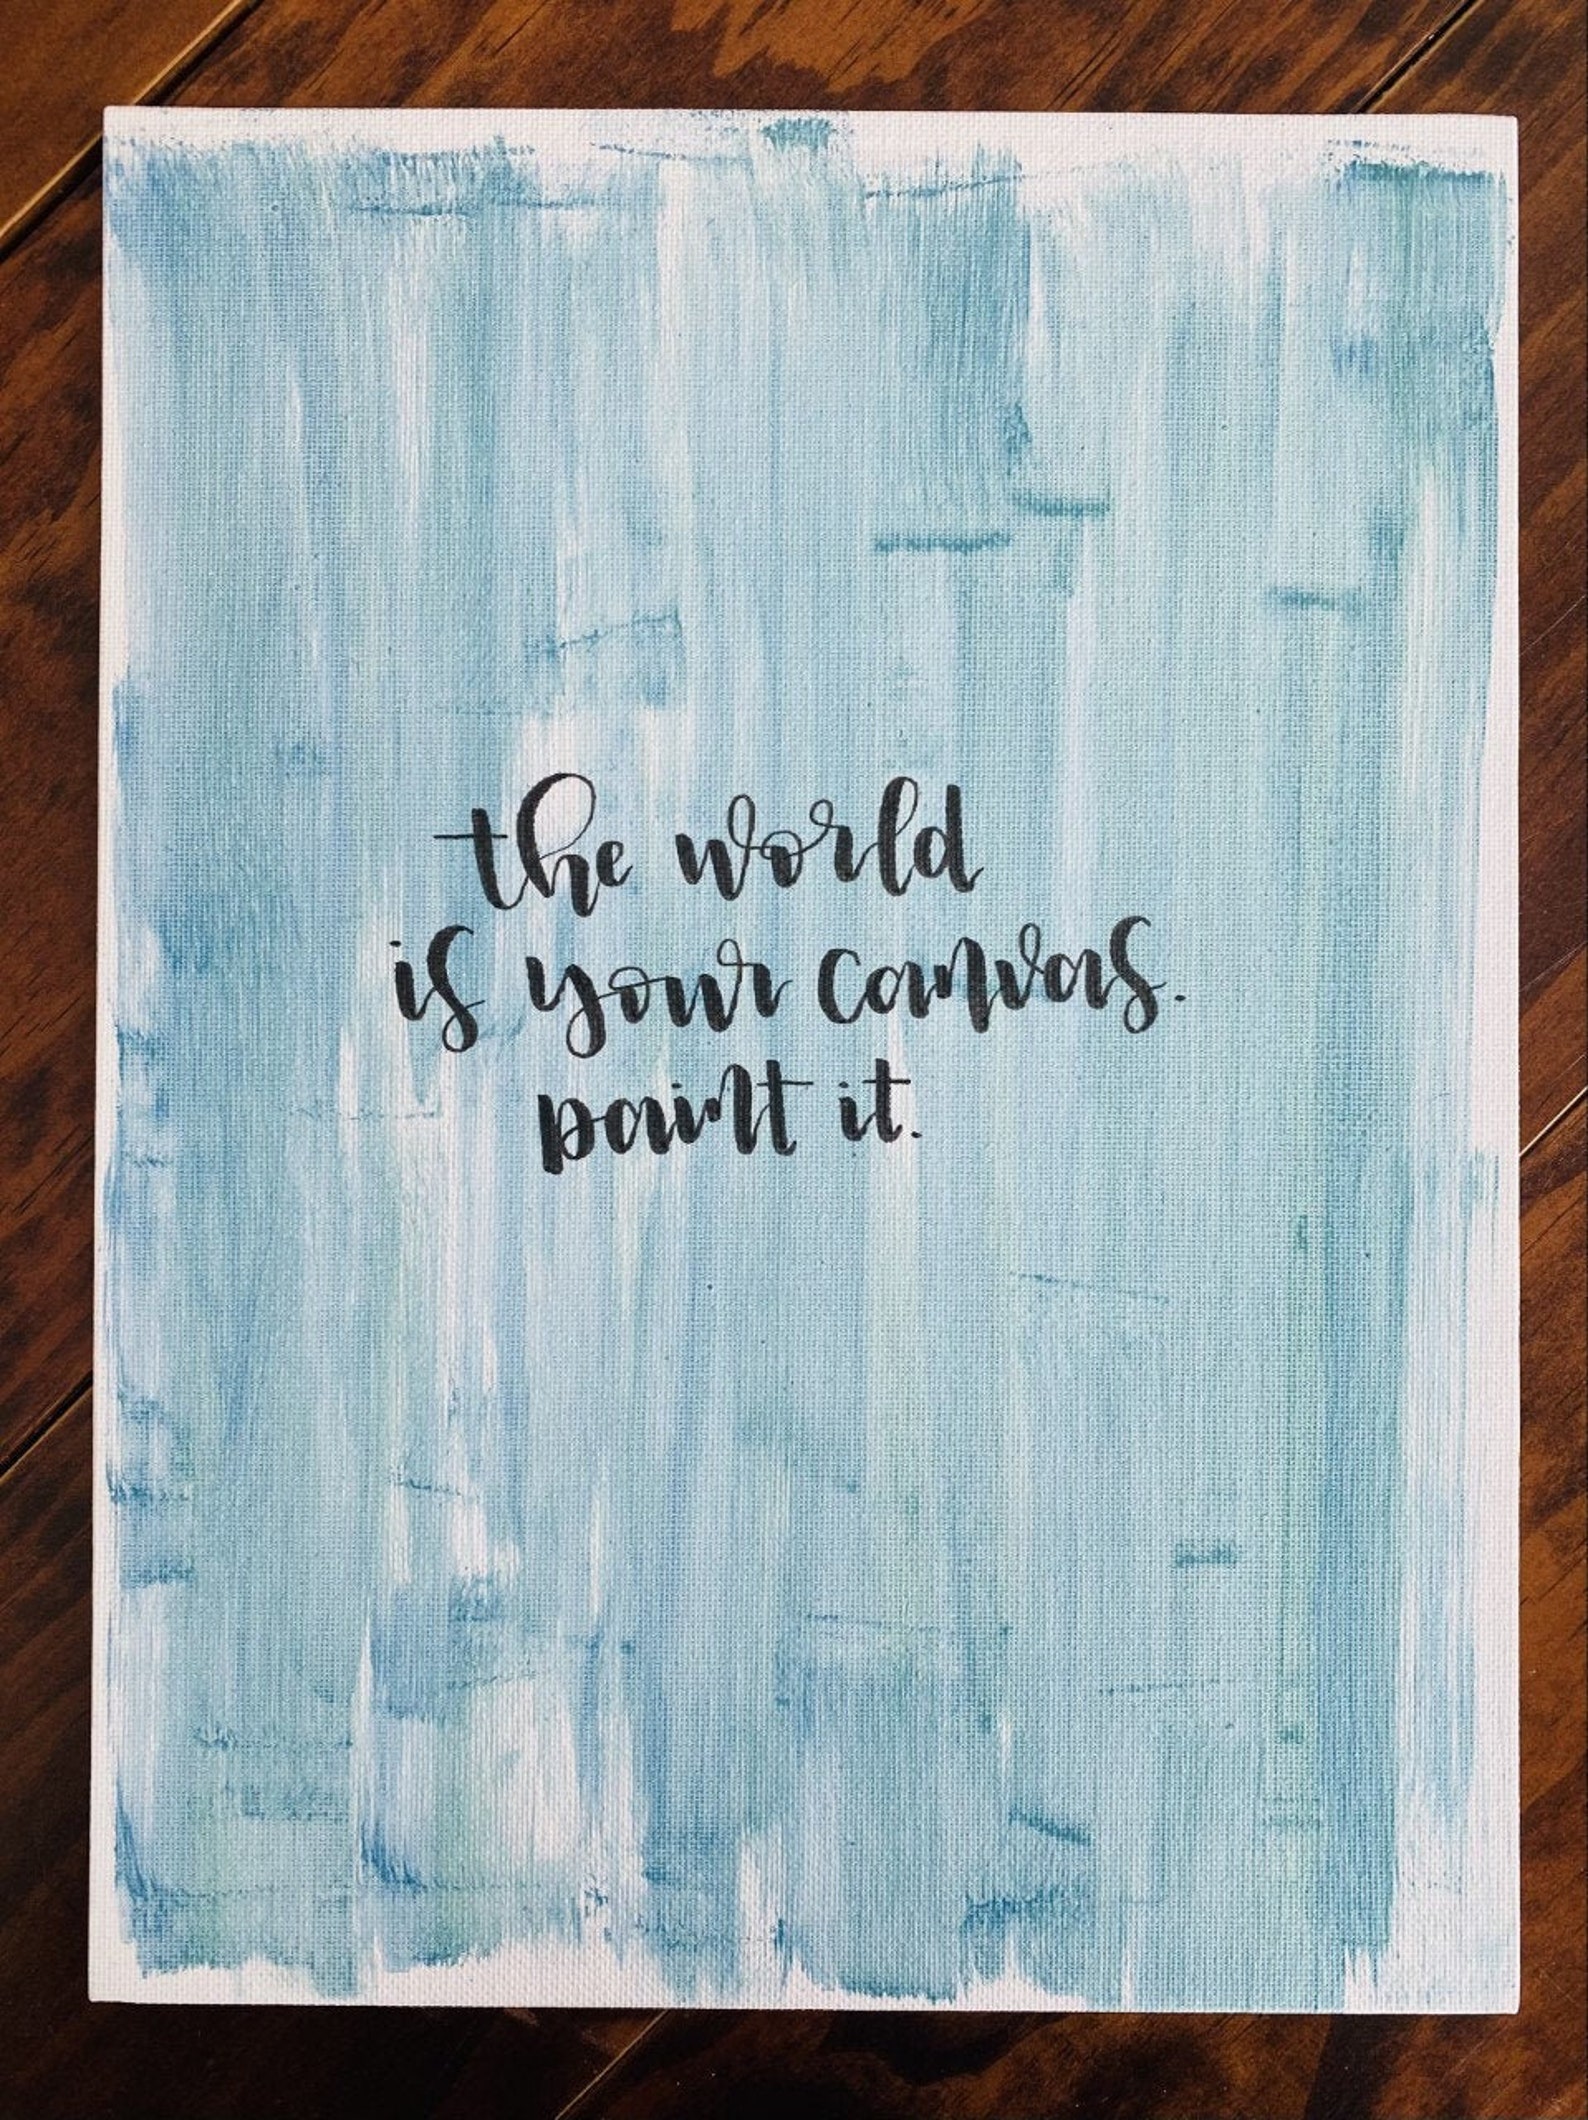 the world
is your canvas.
paint it.